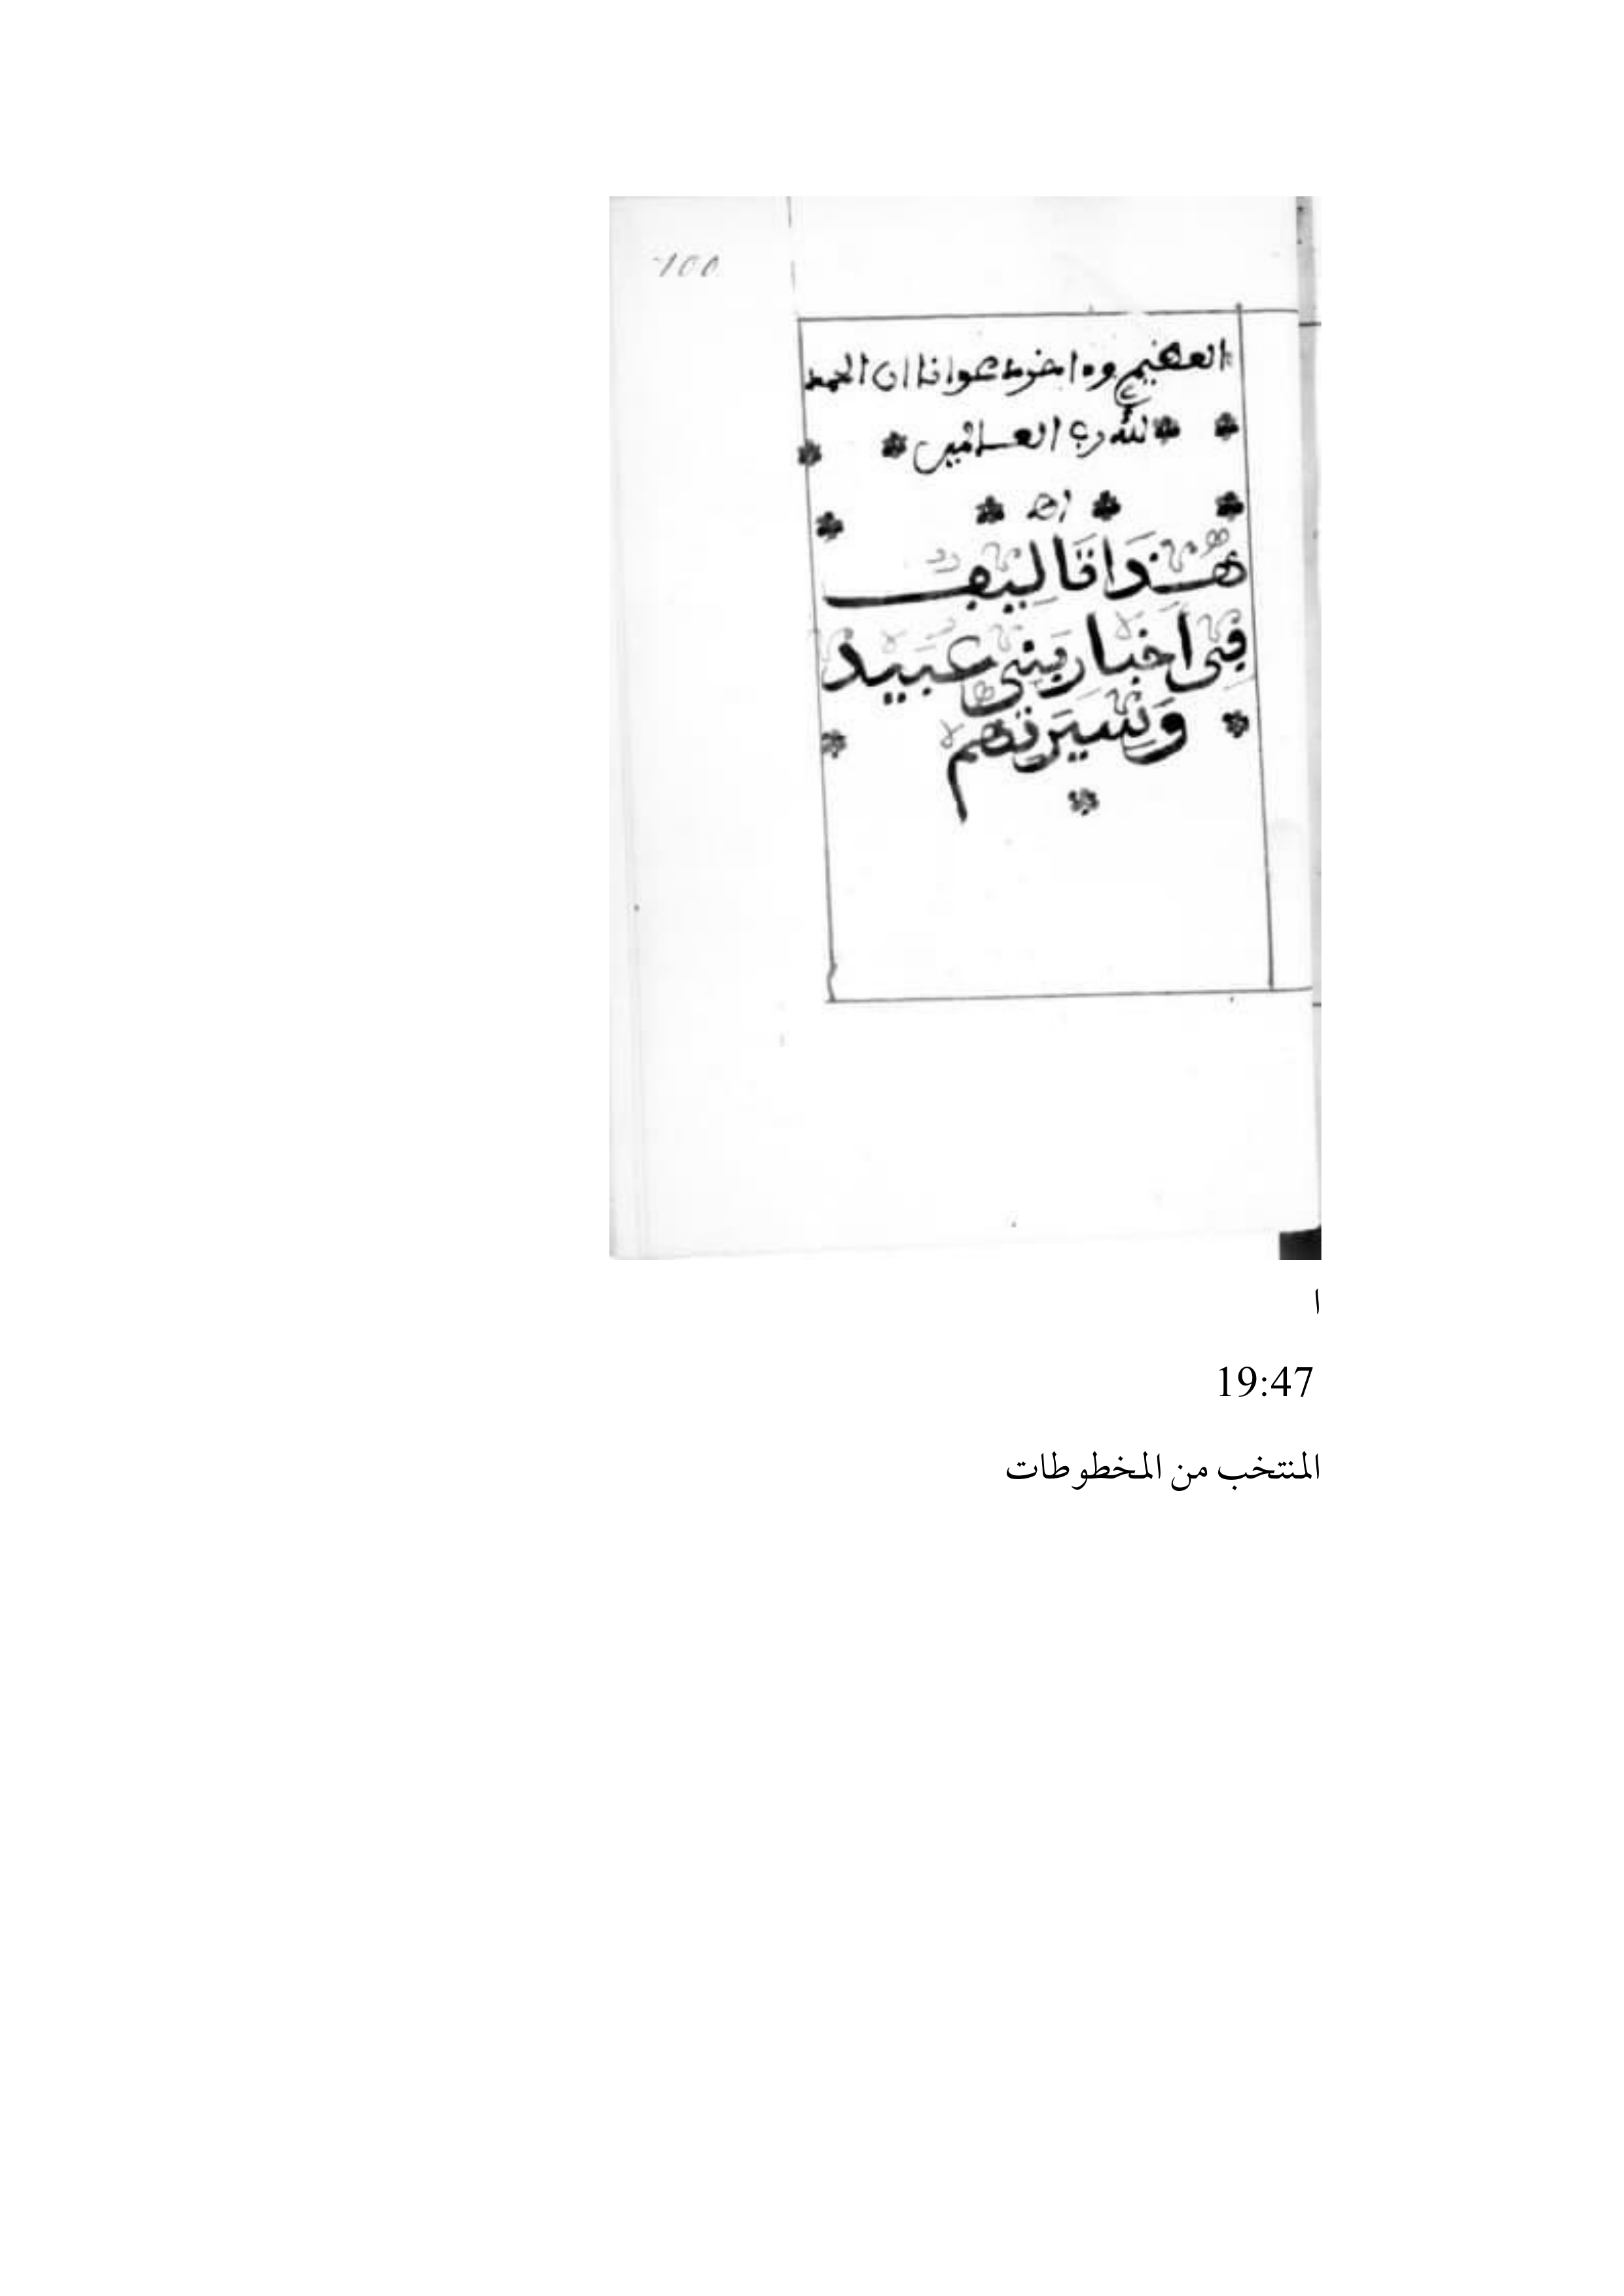 100
العظيم وءاخر دعوانا ان الحمد
لله رب العالمين
اهـ
هَذَا تَالِيف
فِى اَخْبَار بَنِى عُبَيْد
وَسِيرَتِهِمْ
ا
19:47
المنتخب من المخطوطات